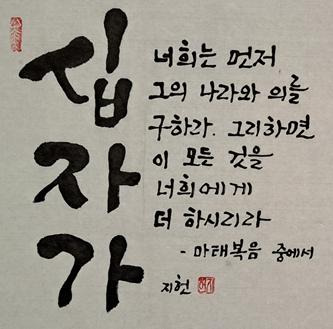 십자가
너희는 먼저
그의 나라와 의를
구하라. 그리하면
이 모든 것을
너희에게
더 하시리라
- 마태복음 중에서
지헌